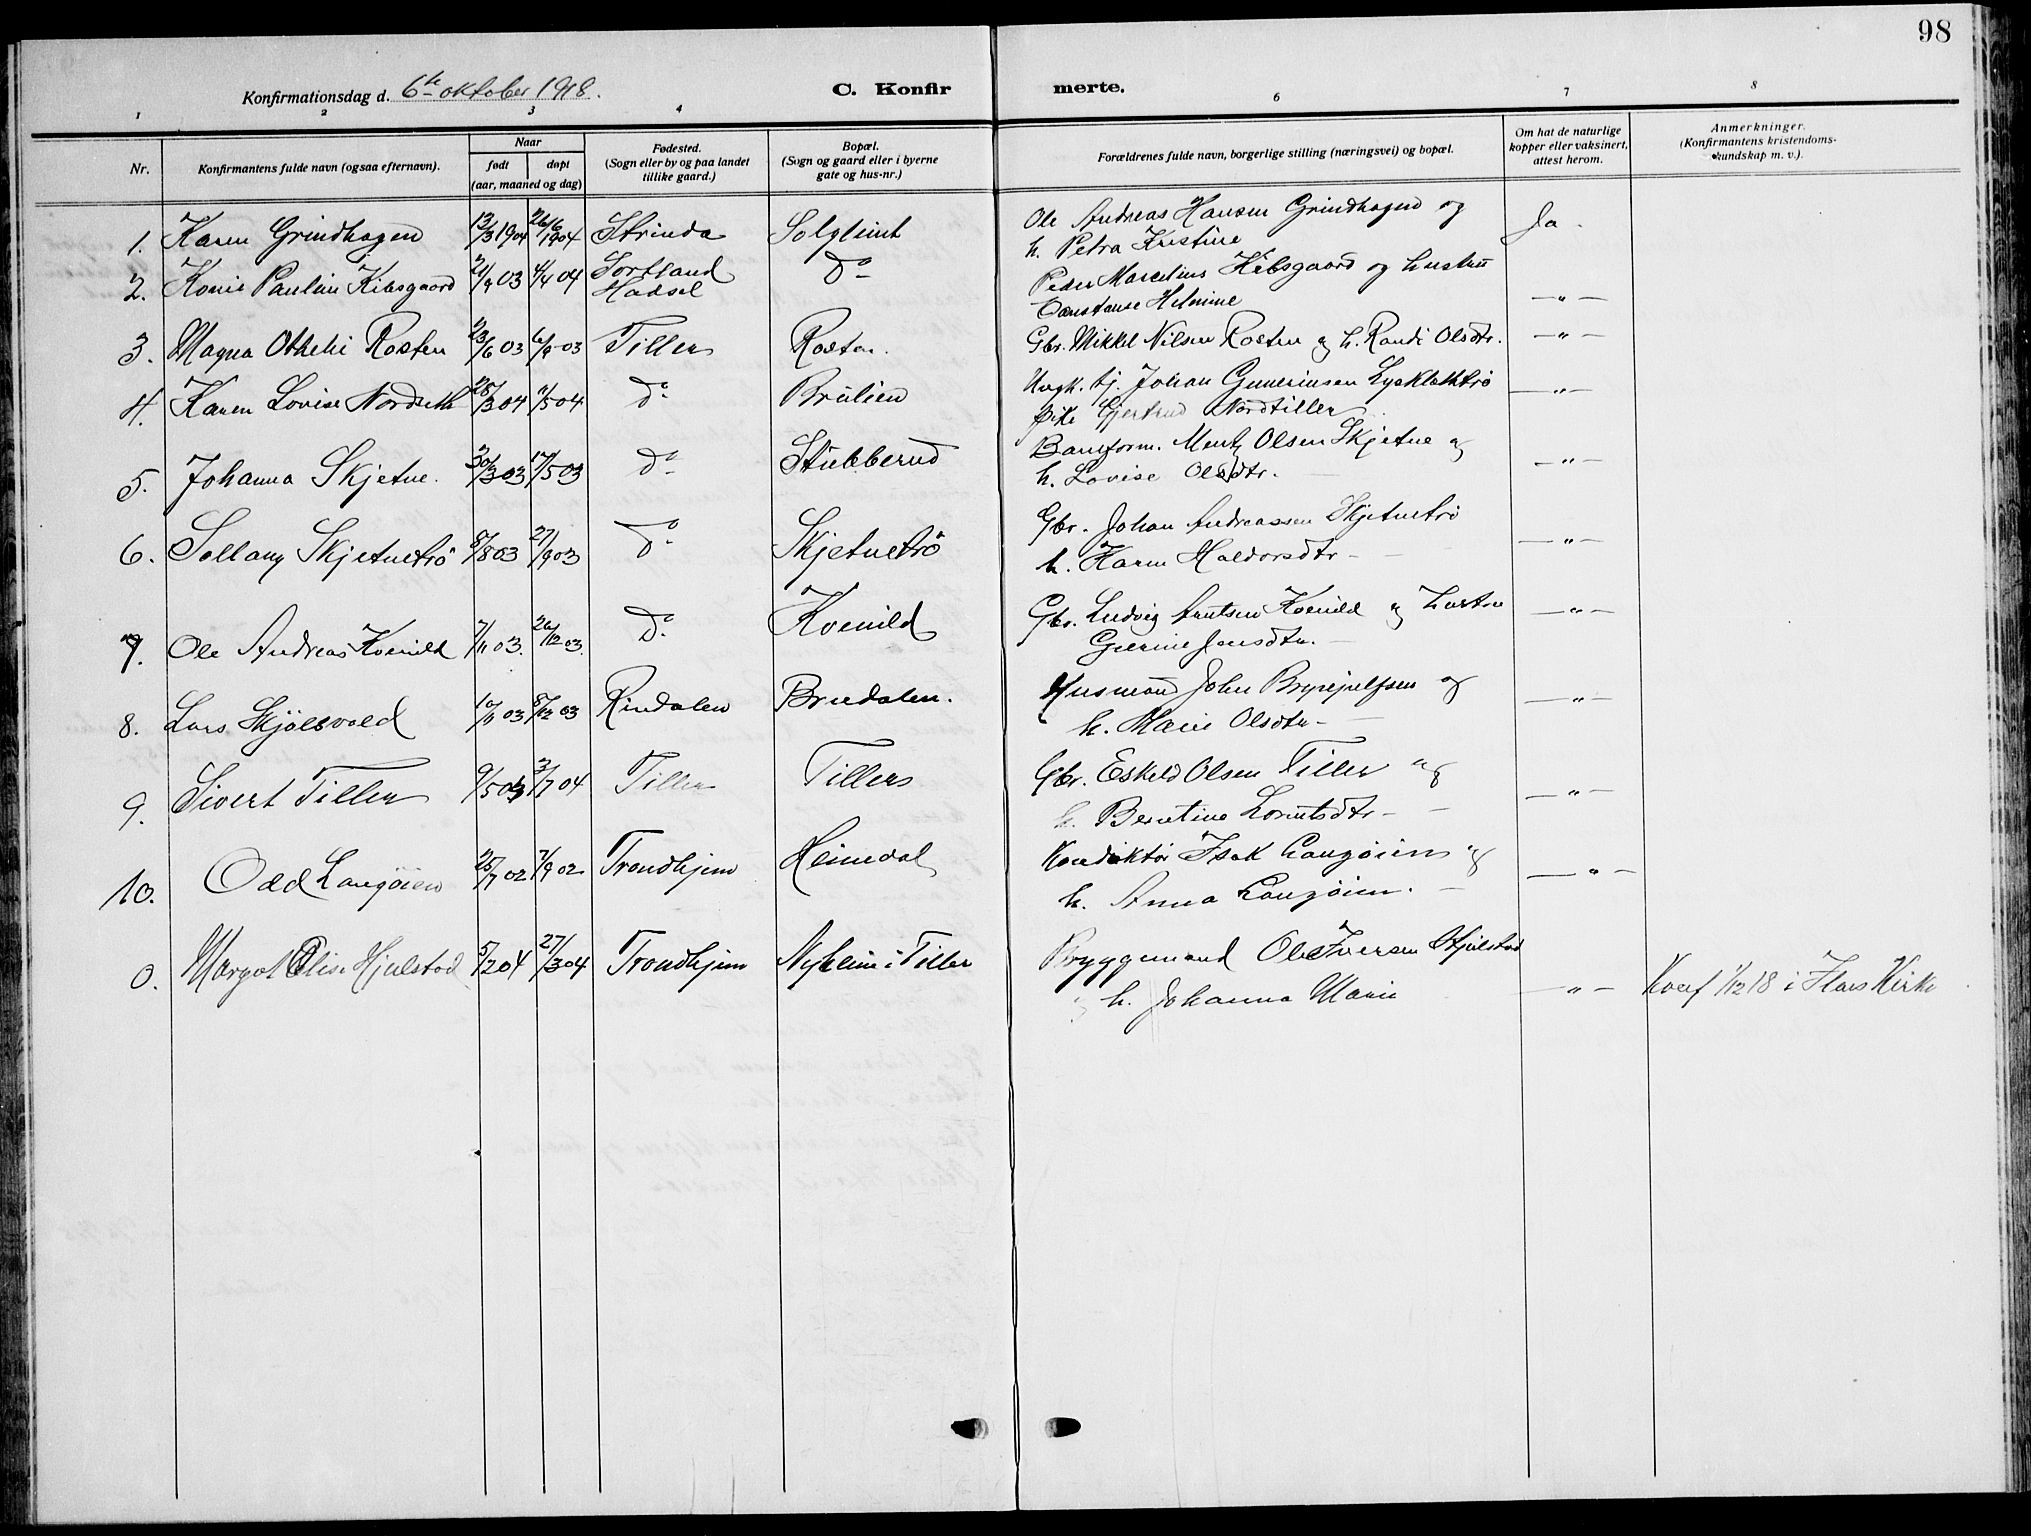 98
Konfirmationsdag d. 6te oktober 1918. C. Konfir merte.
1 2 3 4 6 7 8
Nr. Konfirmantens fulde navn (ogsaa efternavn). Naar født døpt (aar, maaned og dag) Fødested. (Sogn eller by og paa landet tillike gaard.) Bopæl. (Sogn og gaard eller i byerne gate og hus-nr.) Forældrenes fulde navn, borgerlige stilling (næringsvei) og bopæl. Om hat de naturlige kopper eller vaksinert, attest herom. Anmerkninger. (Konfirmantens kristendoms-kundskap m. v.).
1. Karen Grindhagen 13/3 1904 26/6 1904 Strinda Solglimt Ole Andreas Hansen Grindhagen og Ja.
h. Petra Kristine
2. Konie Pauline Kibsgaard 21/9 03 4/4 04 Sortland Hadsel Do Peder Marcelius Kibsgaard og hustru
Constanse Helmine — " —
3. Magna Othelie Rosten 23/6 03 6/9 03 Tiller Rosten. Gbr. Mikkel Nilsen Rosten og h. Randi Olsdtr. — " —
4. Karen Lovise Nordseth 28/3 04 /5 04 Do Brulien Ungk. tj. Johan Gunerinsen Lysklættrø — " —
pike Gjertrud Nordtiller
5. Johanna Skjetne. 30/3 03 17/5 03 Do Stubberud Banform. Mentz Olsen Skjetne og
h. Lovise Olsdtr. — " —
6. Sollaug Skjetnetrö 8/8 03 27/9 03 Do Skjetnetrö Gbr. Johan Andreassen Skjetnetrö
h. Karen Haldorsdtr — " —
7. Ole Andreas Kvenild 7/11 03. 26/12 03. Do Kvenild Gbr. Ludvig Arntsen Kvenild og hustru — " —
Gurine Jensdtr.
8. Lars Skjölsvold 10/11 03 8/12 03 Rindalen Bruedalen. Husmand John Brynjulfsen og
h. Marie Olsdtr — " —
9. Sivert Tiller 9/5 04 3/7 04 Tiller Tiller Gbr. Eskeld Olsen Tiller og
h. Berntine Lorntsdtr — " —
10. Odd Langöien 25/7 02 7/9 02 Trondhjem Heimdal Konduktör Isak Langöien og
h. Anna Langöien. — " —
0. Margot Elise Hjulstad 5/2 04 27/3 04 Trondhjem Nyheim i Tiller Bryggemand Ole Iversen Hjulstad
og h. Johanna Marie — " — Konf 1/12 18 i Ilens Kirke